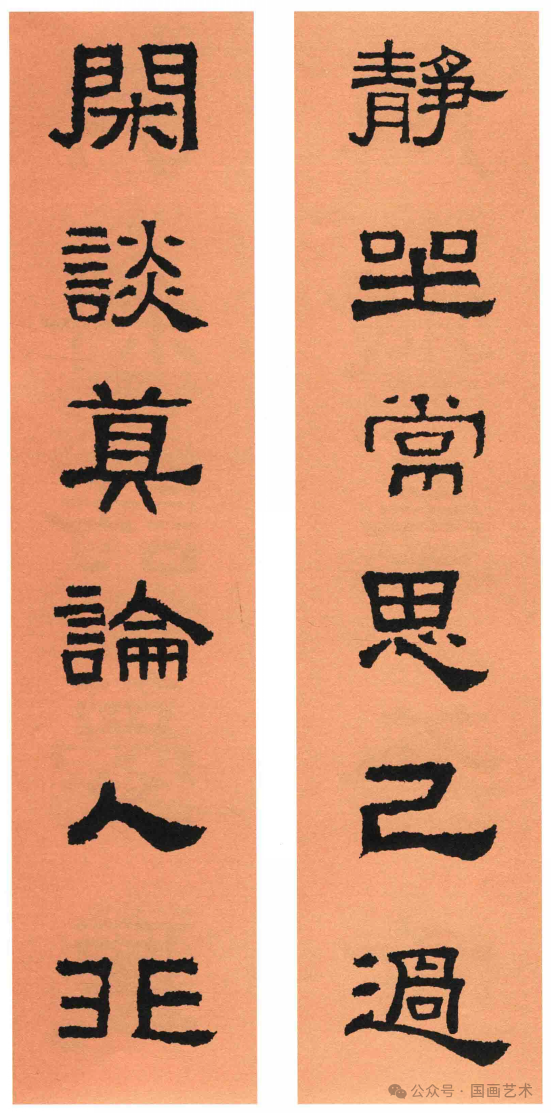 靜坐常思己過
閑談莫論人非
公众号 · 国画艺术